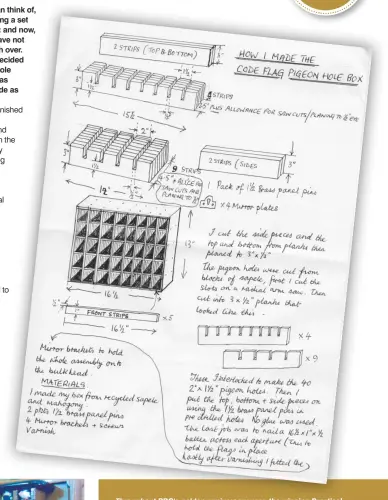 n think of,
ng a set
and now,
ave not
n over.
ecided
ole
as
de as
nished
nd
n the
y
g
al
to
HOW I MADE THE
CODE FLAG PIGEON HOLE BOX
2 STRIPS (TOP & BOTTOM)
3"
1½"
3"
1½
4 STRIPS
15½
.5" PLUS ALLOWANCE FOR SAW CUTS/PLANING TO ½" ETC
2"
3"
1½
9 STRIPS
4.5" + ALLCE FOR
SAW CUTS AND
PLANING TO ½"
2 STRIPS (SIDES
3"
Pack of 1½ Brass panel pins
x 4 Mirror plates
12"
13"
16½
I cut the side pieces and the
top and bottom from planks then
planed to 3" x ½"
The pigeon holes were cut from
blocks of sapele, first I cut the
slots on a radial arm saw. Then
cut into 3 x ½" planks that
looked like this -
½"
1"
FRONT STRIPS
x 5
16½"
x 4
x 9
Mirror brackets to hold
the whole assembly onto
the bulkhead.
MATERIALS
I made my box from recycled sapele
and Mahogany
2 pkts 1½ brass panel pins
4 Mirror brackets + screws
Varnish
These Interlocked to make the 40
2" x 1½" pigeon holes. Then I
put the top, bottom & side pieces on
using the 1½ brass panel pins in
pre drilled holes. No glue was used
The last job was to nail a 16½ x 1" x ½
batten across each aperture (this to
hold the flags in place
Lastly after varnishing I fitted the